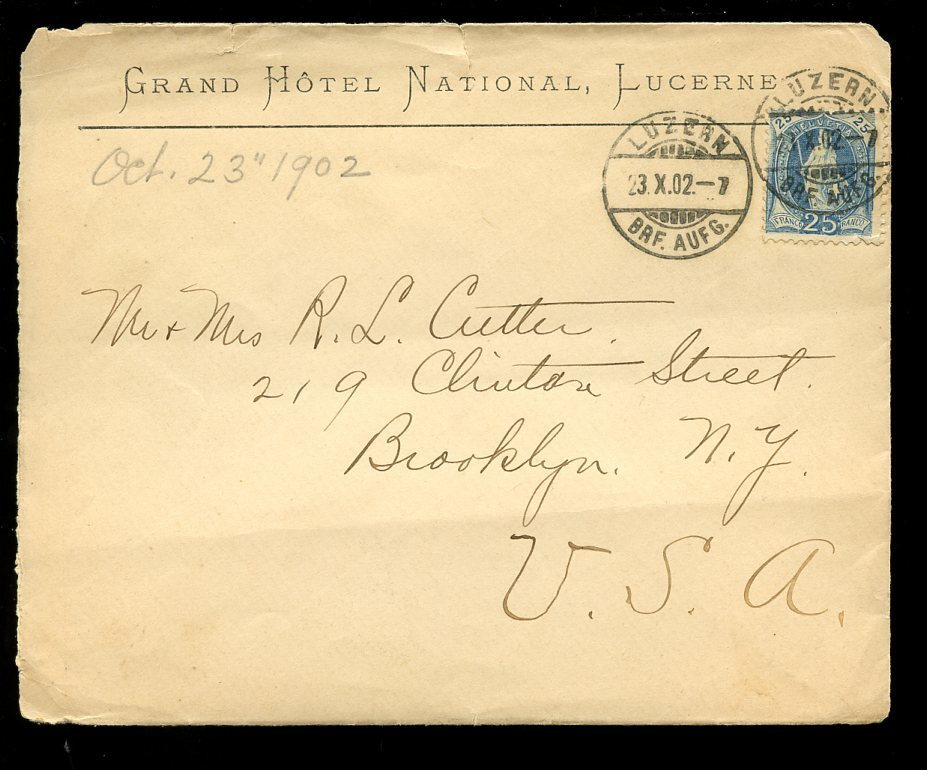 GRAND HÔTEL NATIONAL, LUCERNE
Oct. 23" 1902
LUZERN
23.X.02.–7
BRF. AUFG.
LUZERN
X.02.–7
BRF. AUFG.
25 HELVETIA 25
FRANCO 25 FRANCO
Mr + Mrs R. L. Cutter.
219 Clinton Street.
Brooklyn. N.Y.
U.S.A.